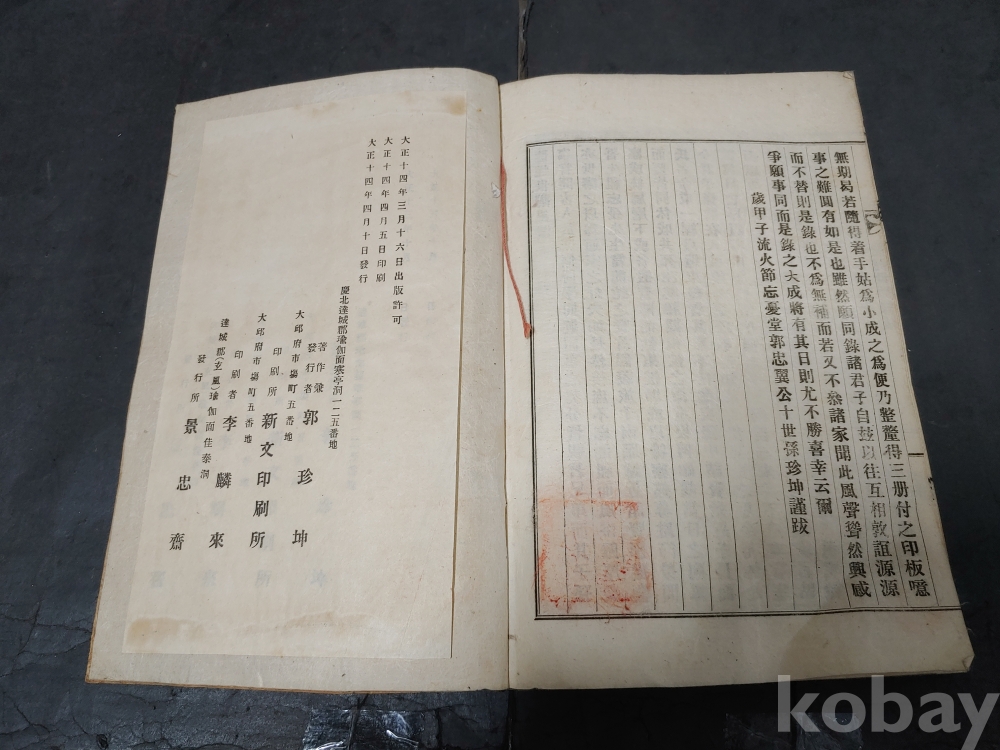 無期曷若隨得着手姑爲小成之爲便乃整釐得三册付之印板噫
事之難圓有如是也雖然願同錄諸君子自玆以往互相敦誼源源
而不替則是錄也不爲無補而若又不叅諸家聞此風聲聳然興感
爭願事同而是錄之大成將有其日則尤不勝喜幸云爾
歲甲子流火節忘憂堂郭忠翼公十世孫珍坤謹跋
大正十四年三月十六日出版許可
大正十四年四月五日印刷
大正十四年四月十日發行
慶北達城郡瑜伽面寒亭洞一二五番地
著作兼發行者 郭珍坤
大邱府市場町五番地
印刷所 新文印刷所
大邱府市場町五番地
印刷者 李麟來
達城郡(玄風)瑜伽面佳泰洞
發行所 景忠齋
kobay